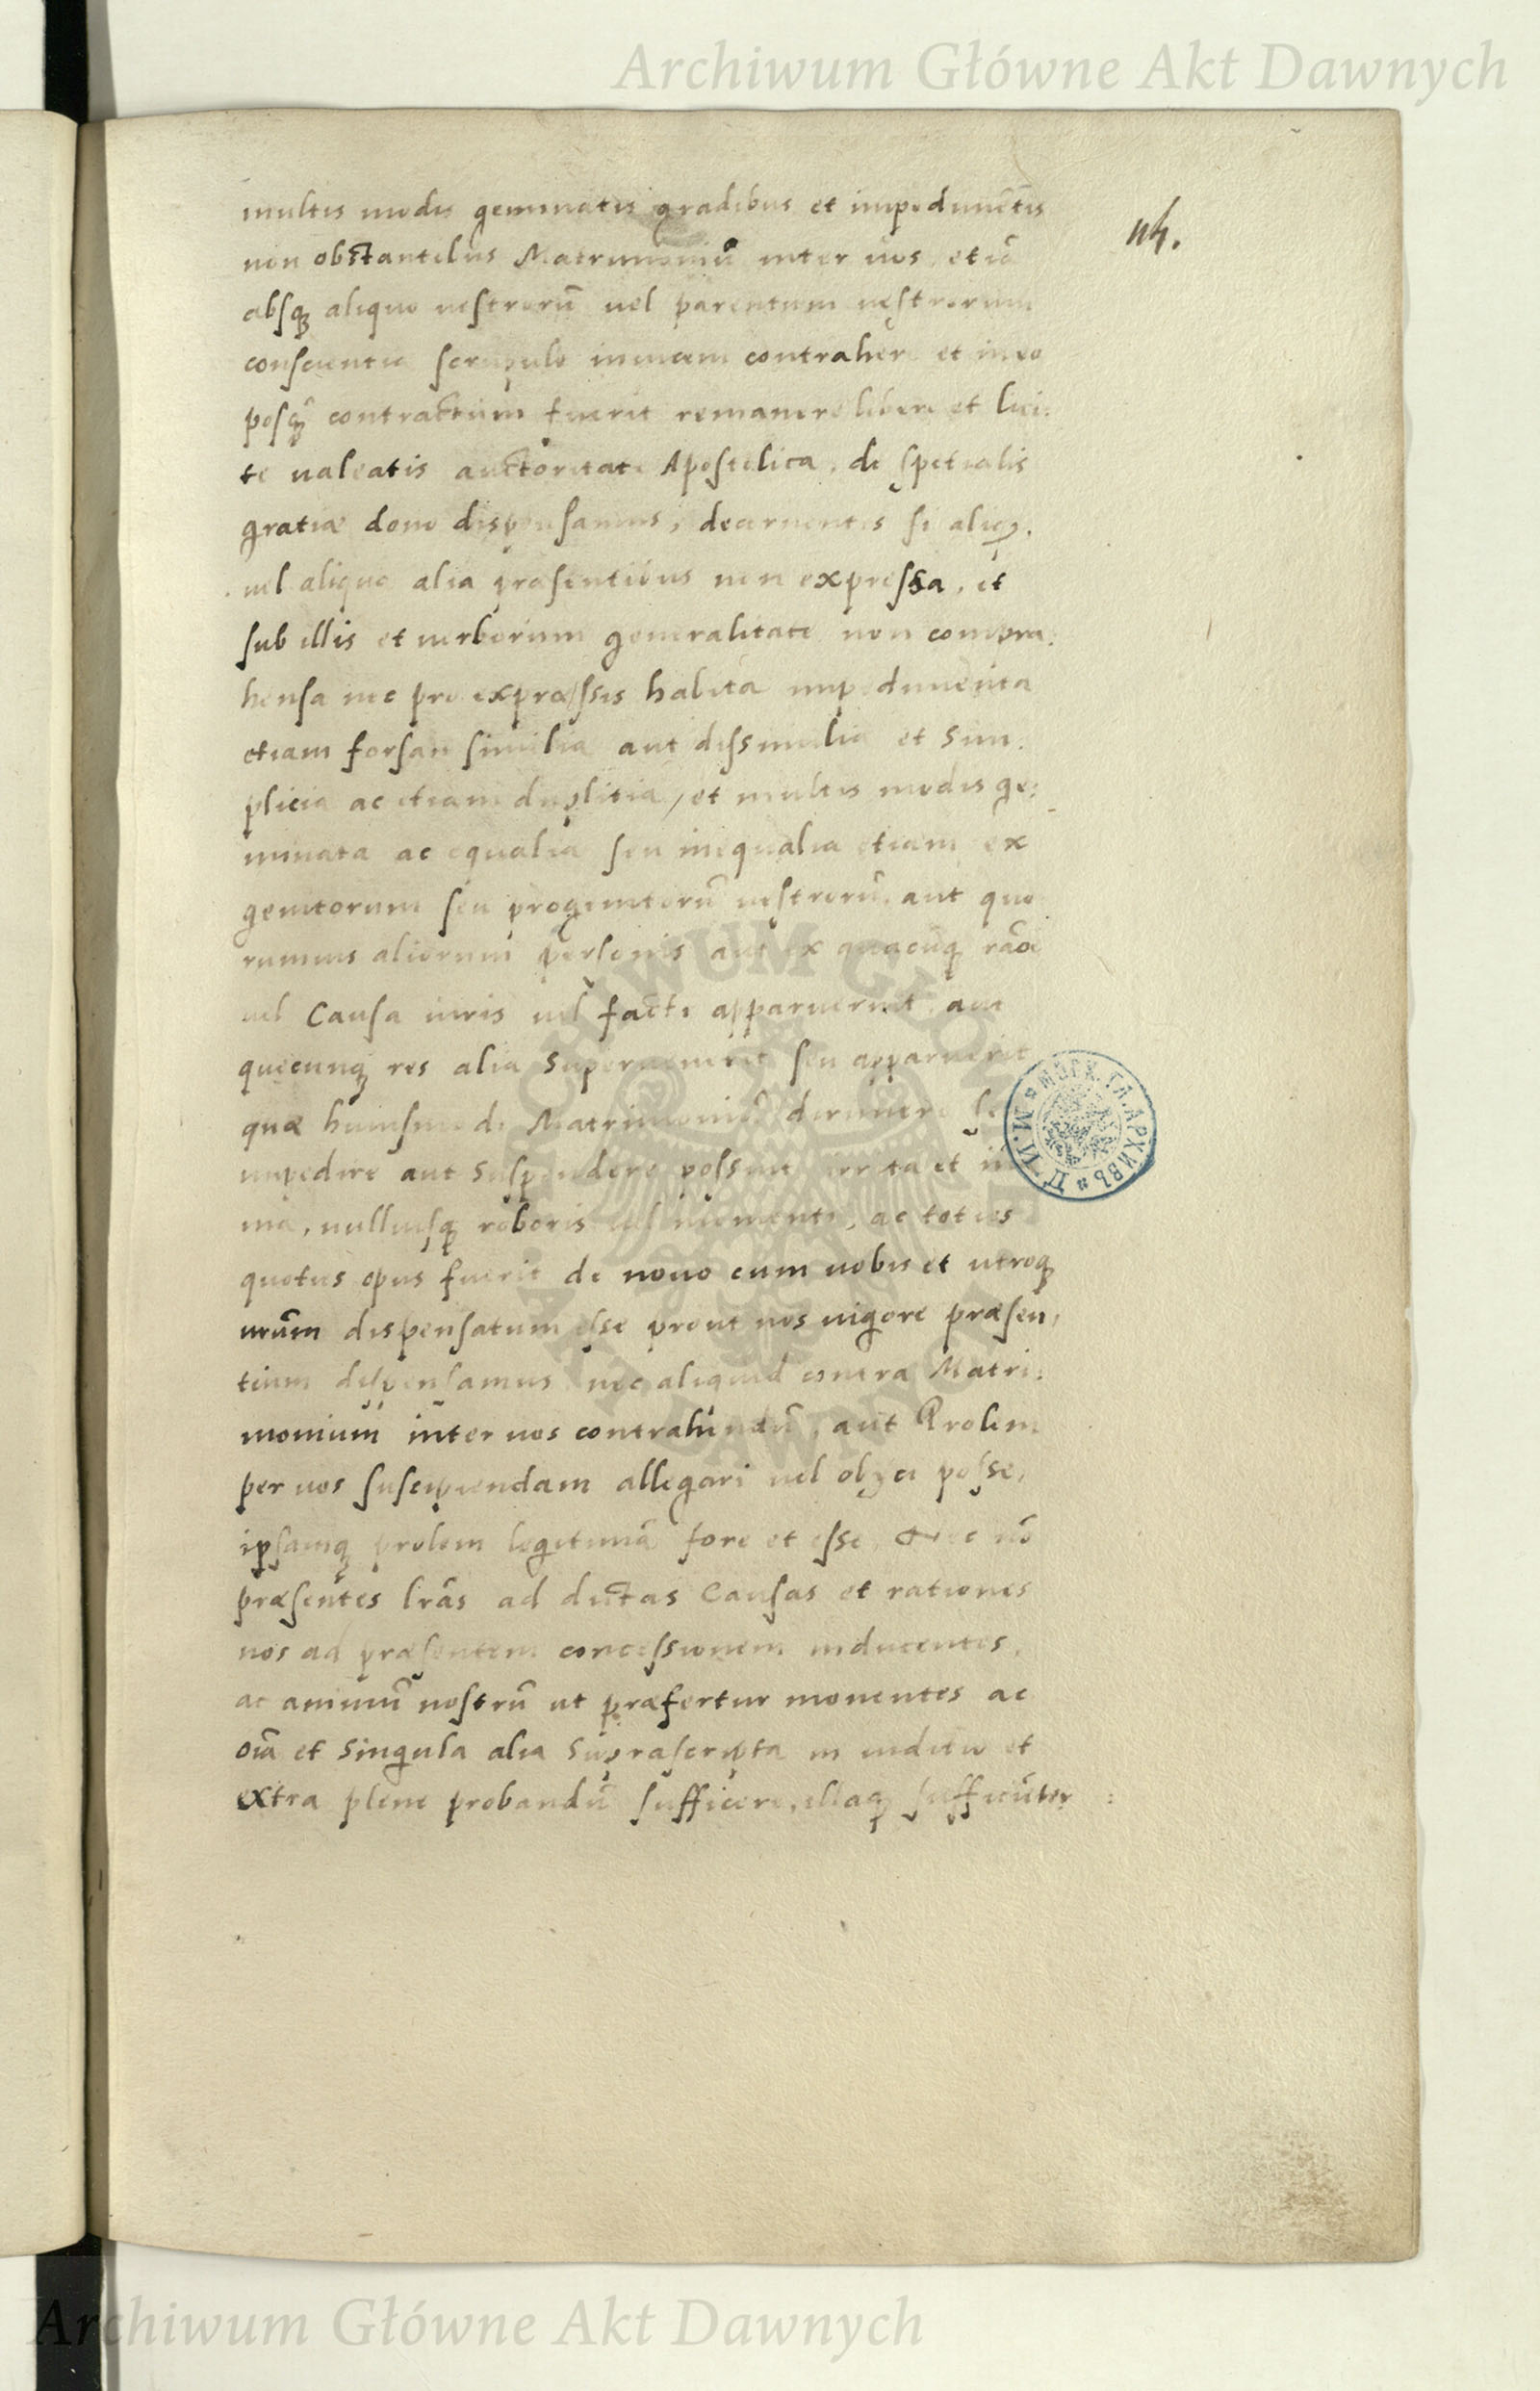 Archiwum Główne Akt Dawnych
multis modis geminatis gradibus et impedimētis
114.
non obstantibus Matrimoniū inter vos, etiā
absq̄ aliquo vestrorū vel parentum vestrorum
conscientie scrupulo invicem contrahere et in eo
posq̄ contractum fuerit remanere libere et lici:
te valeatis auctoritate Apostolica, de spetialis
gratiæ dono dispensamus, decernentes si aliqȝ.
vel aliqua alia præsentibus non expressa, et
sub illis et verborum generalitate non compræ:
hensa nec pro expræssis habita impedimenta
etiam forsan similia aut dissimilia et Sim.
plicia ac etiam duplitia, et multis modis ge:
minata ac equalia seu inequalia etiam ex
genitorum seu progenitorū vestrorū, aut quo
rumvis aliorum personis aut ex quacūq̄ rāōe
vel Causa iuris vel facti apparuerint, aut
quecunq̄ res alia Supervenerit seu apparuerit
quæ huiusmodi Matrimoniū dirimere seu
impedire aut Suspendere possunt irrita et in
nia, nulliusq̄ roboris vel momenti, ac toties
quotus opus fuerit de novo cum vobis et utroq̄
vrūm dispensatum esse prout nos vigore præsen,
tium dispensamus nec aliquid contra Matri:
monium inter vos contrahendū, aut Prolem
per vos suscipiendam allegari vel obijci posse,
ipsamq̄ prolem legitimā fore et esse, Nec nō
præsentes lrās ad dictas Causas et rationes
nos ad præsentem concessionem inducentes,
ac animū nostrū ut præfertur moventes ac
oīa et Singula alia Suprascripta in iuditio et
extra plene probandū sufficere, illaq̄ sufficiēter:
ARCHIWUM GŁÓWNE AKT DAWNYCH
МОСК. ГЛ. АРХИВЪ М. И. Д.
Archiwum Główne Akt Dawnych